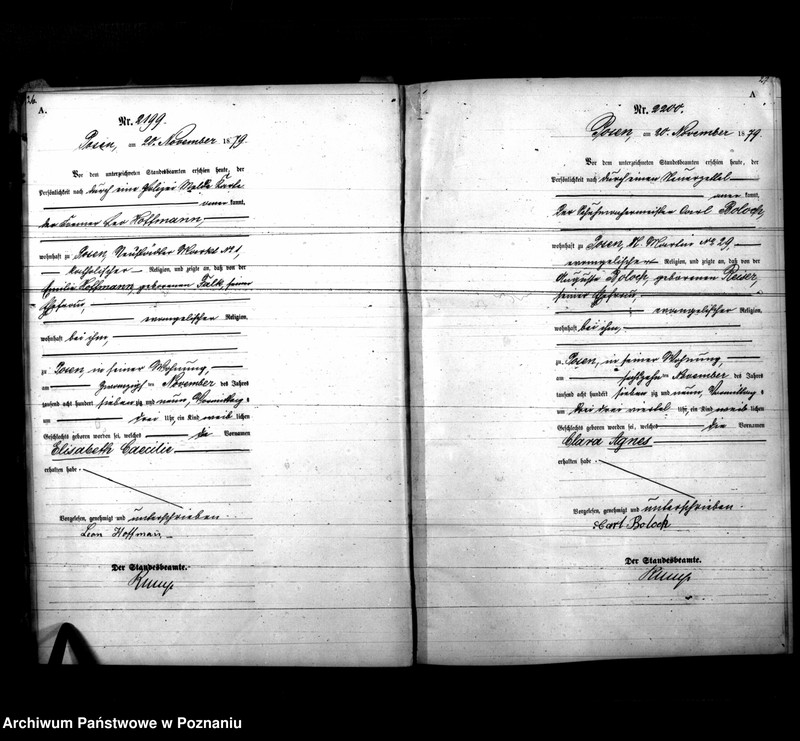 26.
A.
Nr. 2199.
Posen, am 20. November 1879.
Vor dem unterzeichneten Standesbeamten erschien heute, der
Persönlichkeit nach durch eine Polizei Melde Karte
kannt,
der Hoffmann,
wohnhaft zu Posen, Neustädter Markt No 1,
katholischer Religion, und zeigte an, daß von der
Emilie Hoffmann, geborenen Falk, seiner
Ehefrau,
evangelischer Religion,
wohnhaft bei ihm,
zu Posen, in seiner Wohnung,
am zwanzigsten November des Jahres
tausend acht hundert siebenzig und neun, Vormittags
um drei Uhr, ein Kind weiblichen
Geschlechts geboren worden sei, welches die Vornamen
Elisabeth Caecilie
erhalten habe.
Vorgelesen, genehmigt und unterschrieben.
Leon Hoffmann
Der Standesbeamte.
27
A
Nr. 2200.
Posen, am 20. November 1879.
Vor dem unterzeichneten Standesbeamten erschien heute, der
Persönlichkeit nach durch einen Steuerzettel
kannt,
der Schuhmachermeister Carl Boloch,
wohnhaft zu Posen, St. Martin No 29,
evangelischer Religion, und zeigte an, daß von der
Auguste Boloch, geborenen Reiser,
seiner Ehefrau,
evangelischer Religion,
wohnhaft bei ihm,
zu Posen, in seiner Wohnung,
am sechszehnten November des Jahres
tausend acht hundert siebenzig und neun, Vormittags
um drei viertel Uhr, ein Kind weiblichen
Geschlechts geboren worden sei, welches die Vornamen
Clara Agnes
erhalten habe.
Vorgelesen, genehmigt und unterschrieben.
Carl Boloch
Der Standesbeamte.
Archiwum Państwowe w Poznaniu